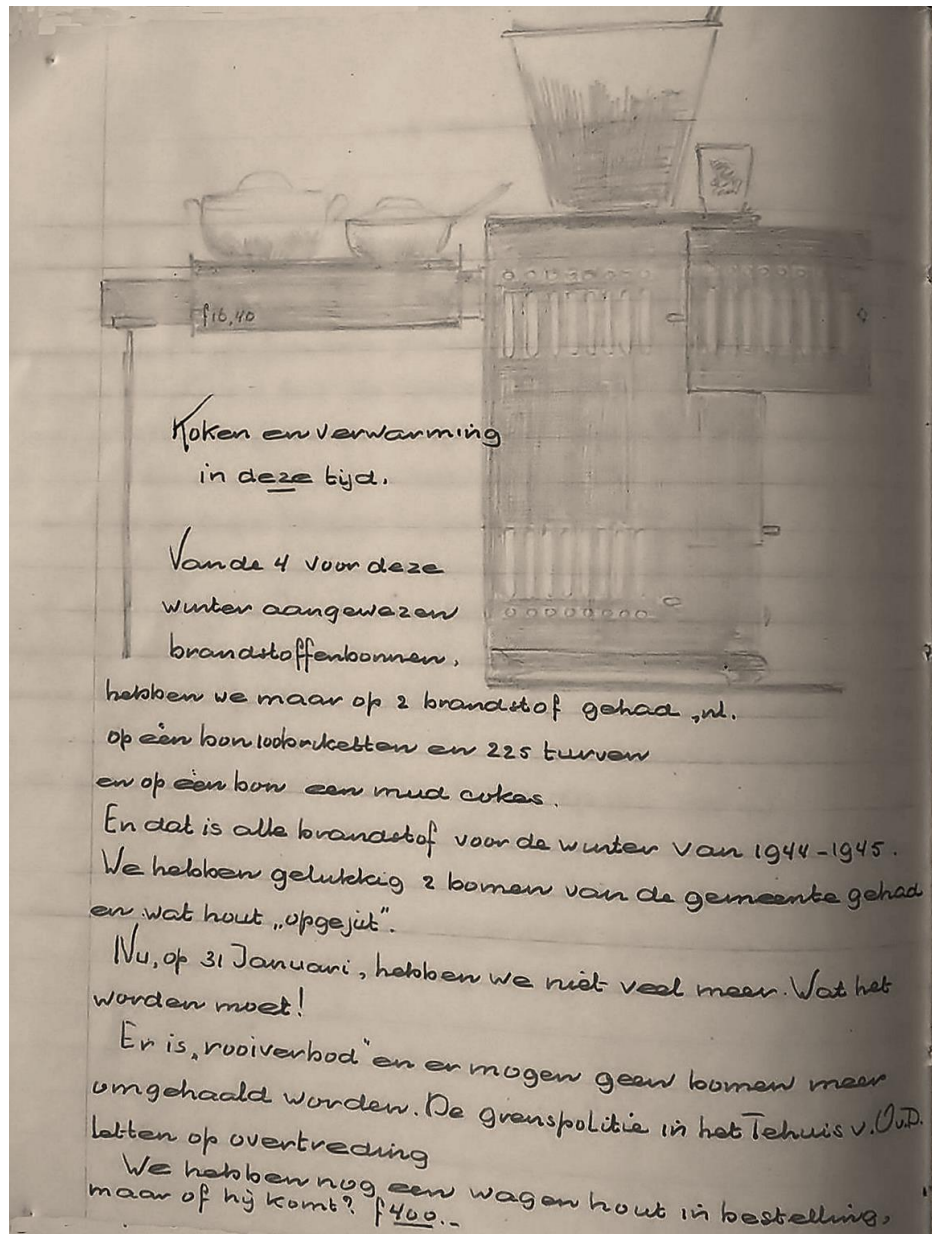 f16,40
Koken en verwarming
in deze tijd.
Van de 4 voor deze
winter aangewezen
brandstoffenbonnen,
hebben we maar op 2 brandstof gehad, nl.
op één bon 100 briketten en 225 turven
en op één bon een mud cokes.
En dat is alle brandstof voor de winter van 1944-1945.
We hebben gelukkig 2 bomen van de gemeente gehad
en wat hout „opgejut”.
Nu, op 31 Januari, hebben we niet veel meer. Wat het
worden moet!
Er is „rooiverbod” en er mogen geen bomen meer
omgehaald worden. De grenspolitie in het Tehuis v. O.v.D.
letten op overtreding
We hebben nog een wagen hout in bestelling,
maar of hij komt? f400.-